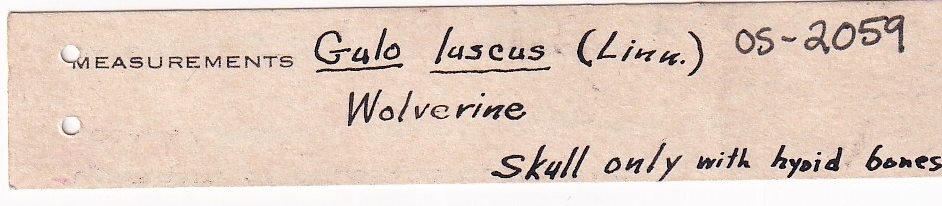 MEASUREMENTS Gulo luscus (Linn.) OS-2059
Wolverine
Skull only with hyoid bones